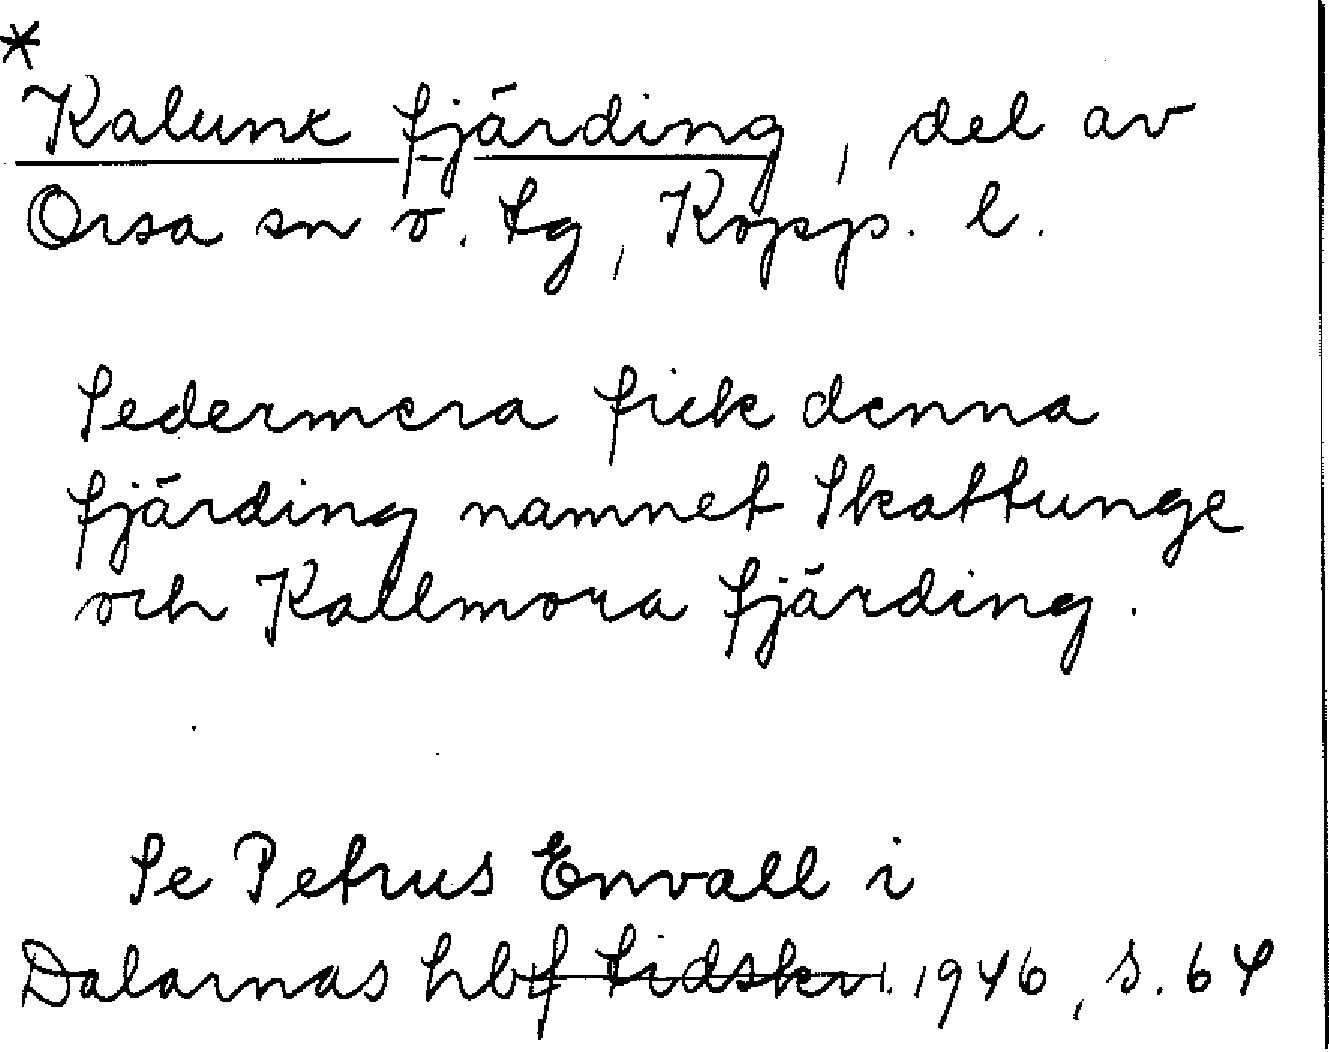 *
Kalunx fjärding, del av
Orsa sn o. tg, Kopp. l.
Sedermera fick denna
fjärding namnet Skattunge
och Kallmora fjärding.
Se Petrus Envall i
Dalarnas hbf tidskr. 1946, s. 64